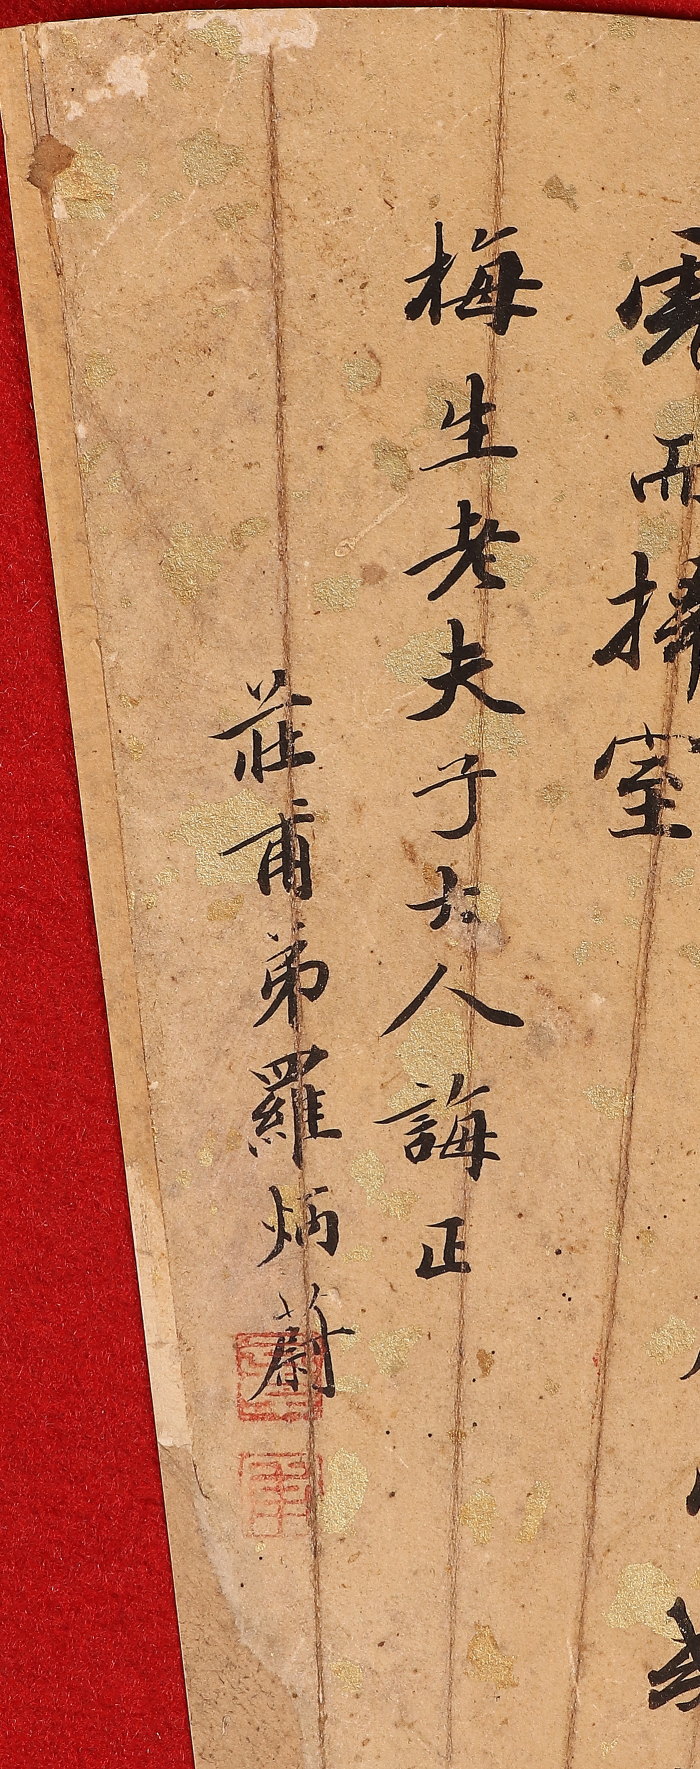 而
室
梅生老夫子大人誨正
莊甫弟羅炳蔚